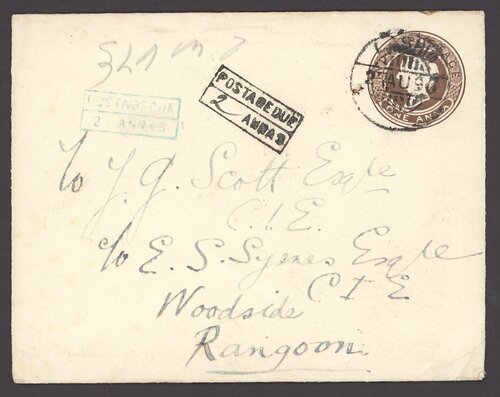 POSTAGE DUE
2 ANNAS
POSTAGE DUE
2 ANNAS
POSTAGE
ONE ANNA
To J. G. Scott Esqre
C. I. E.
c/o E. S. Symes Esqre
C I E
Woodside
Rangoon